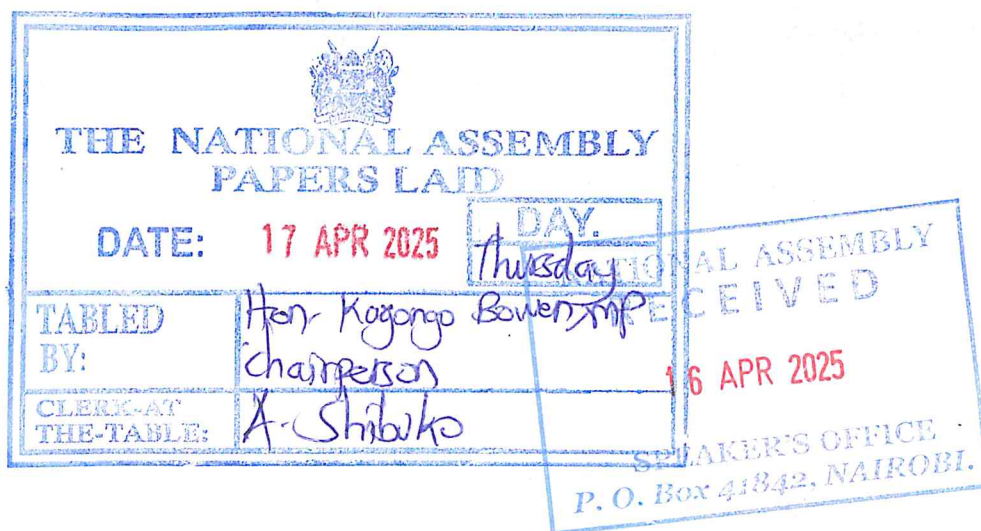 THE NATIONAL ASSEMBLY
PAPERS LAID
DATE: 17 APR 2025
DAY.
Thursday
TABLED BY:
Hon. Kogongo Bowen, MP
Chairperson
CLERK-AT THE-TABLE:
A. Shibuko
NATIONAL ASSEMBLY
RECEIVED
16 APR 2025
SPEAKER'S OFFICE
P. O. Box 41842, NAIROBI.